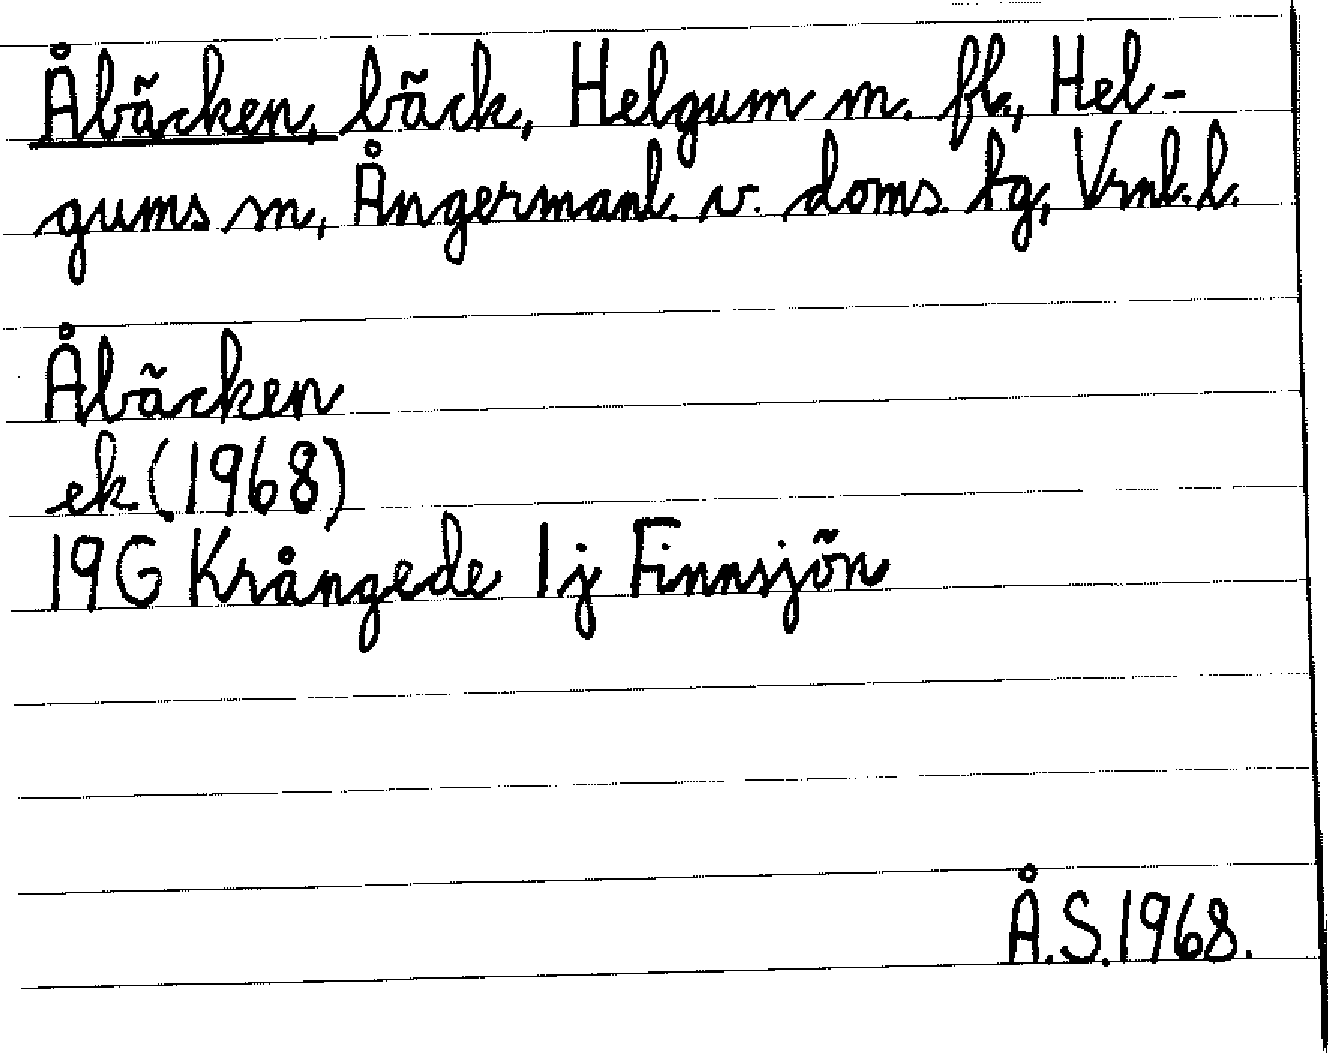 Åbäcken, bäck, Helgum m. fl., Hel-
gums sn, Ångermanl. v. doms. tg, Vrnl. l.
Åbäcken
ek (1968)
19G Krångede 1j Finnsjön
Å.S. 1968.